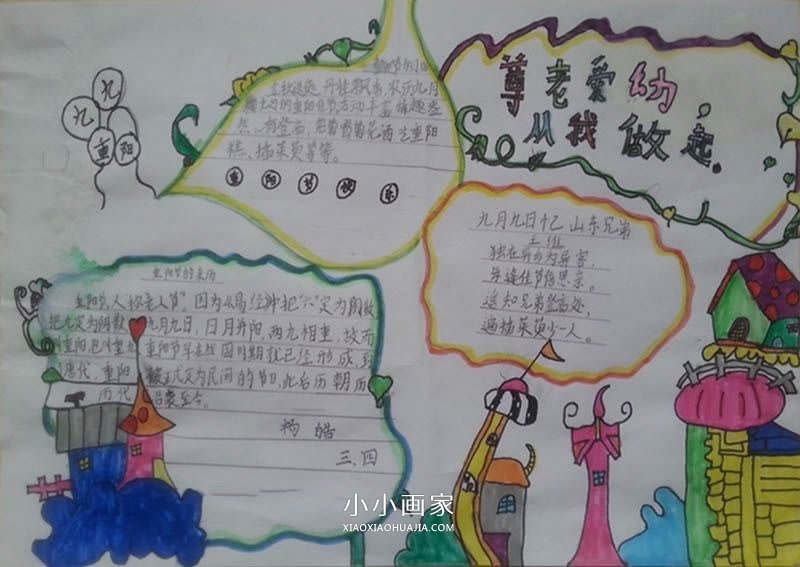 尊老爱幼，
从我做起．
九九
重阳
金秋送爽，丹桂飘香，农历九月
九日的重阳佳节活动丰富，情趣盎
然，有登高、赏菊、喝菊花酒、吃重阳
糕、插茱萸等等。
重阳节快乐
九月九日忆山东兄弟
王维
独在异乡为异客，
每逢佳节倍思亲。
遥知兄弟登高处，
遍插茱萸少一人。
重阳节的来历
重阳节，又称老人节"。因为《易经》中把"六"定为阴数
把九定为阳数 九月九日，日月并阳，两九相重，故而
重阳节早在战国时期就已经形成，到
唐代，重阳 被正式定为民间的节日，此后历朝历
代 沿袭至今。
杨皓
三．四
小小画家
XIAOXIAOHUAJIA.COM